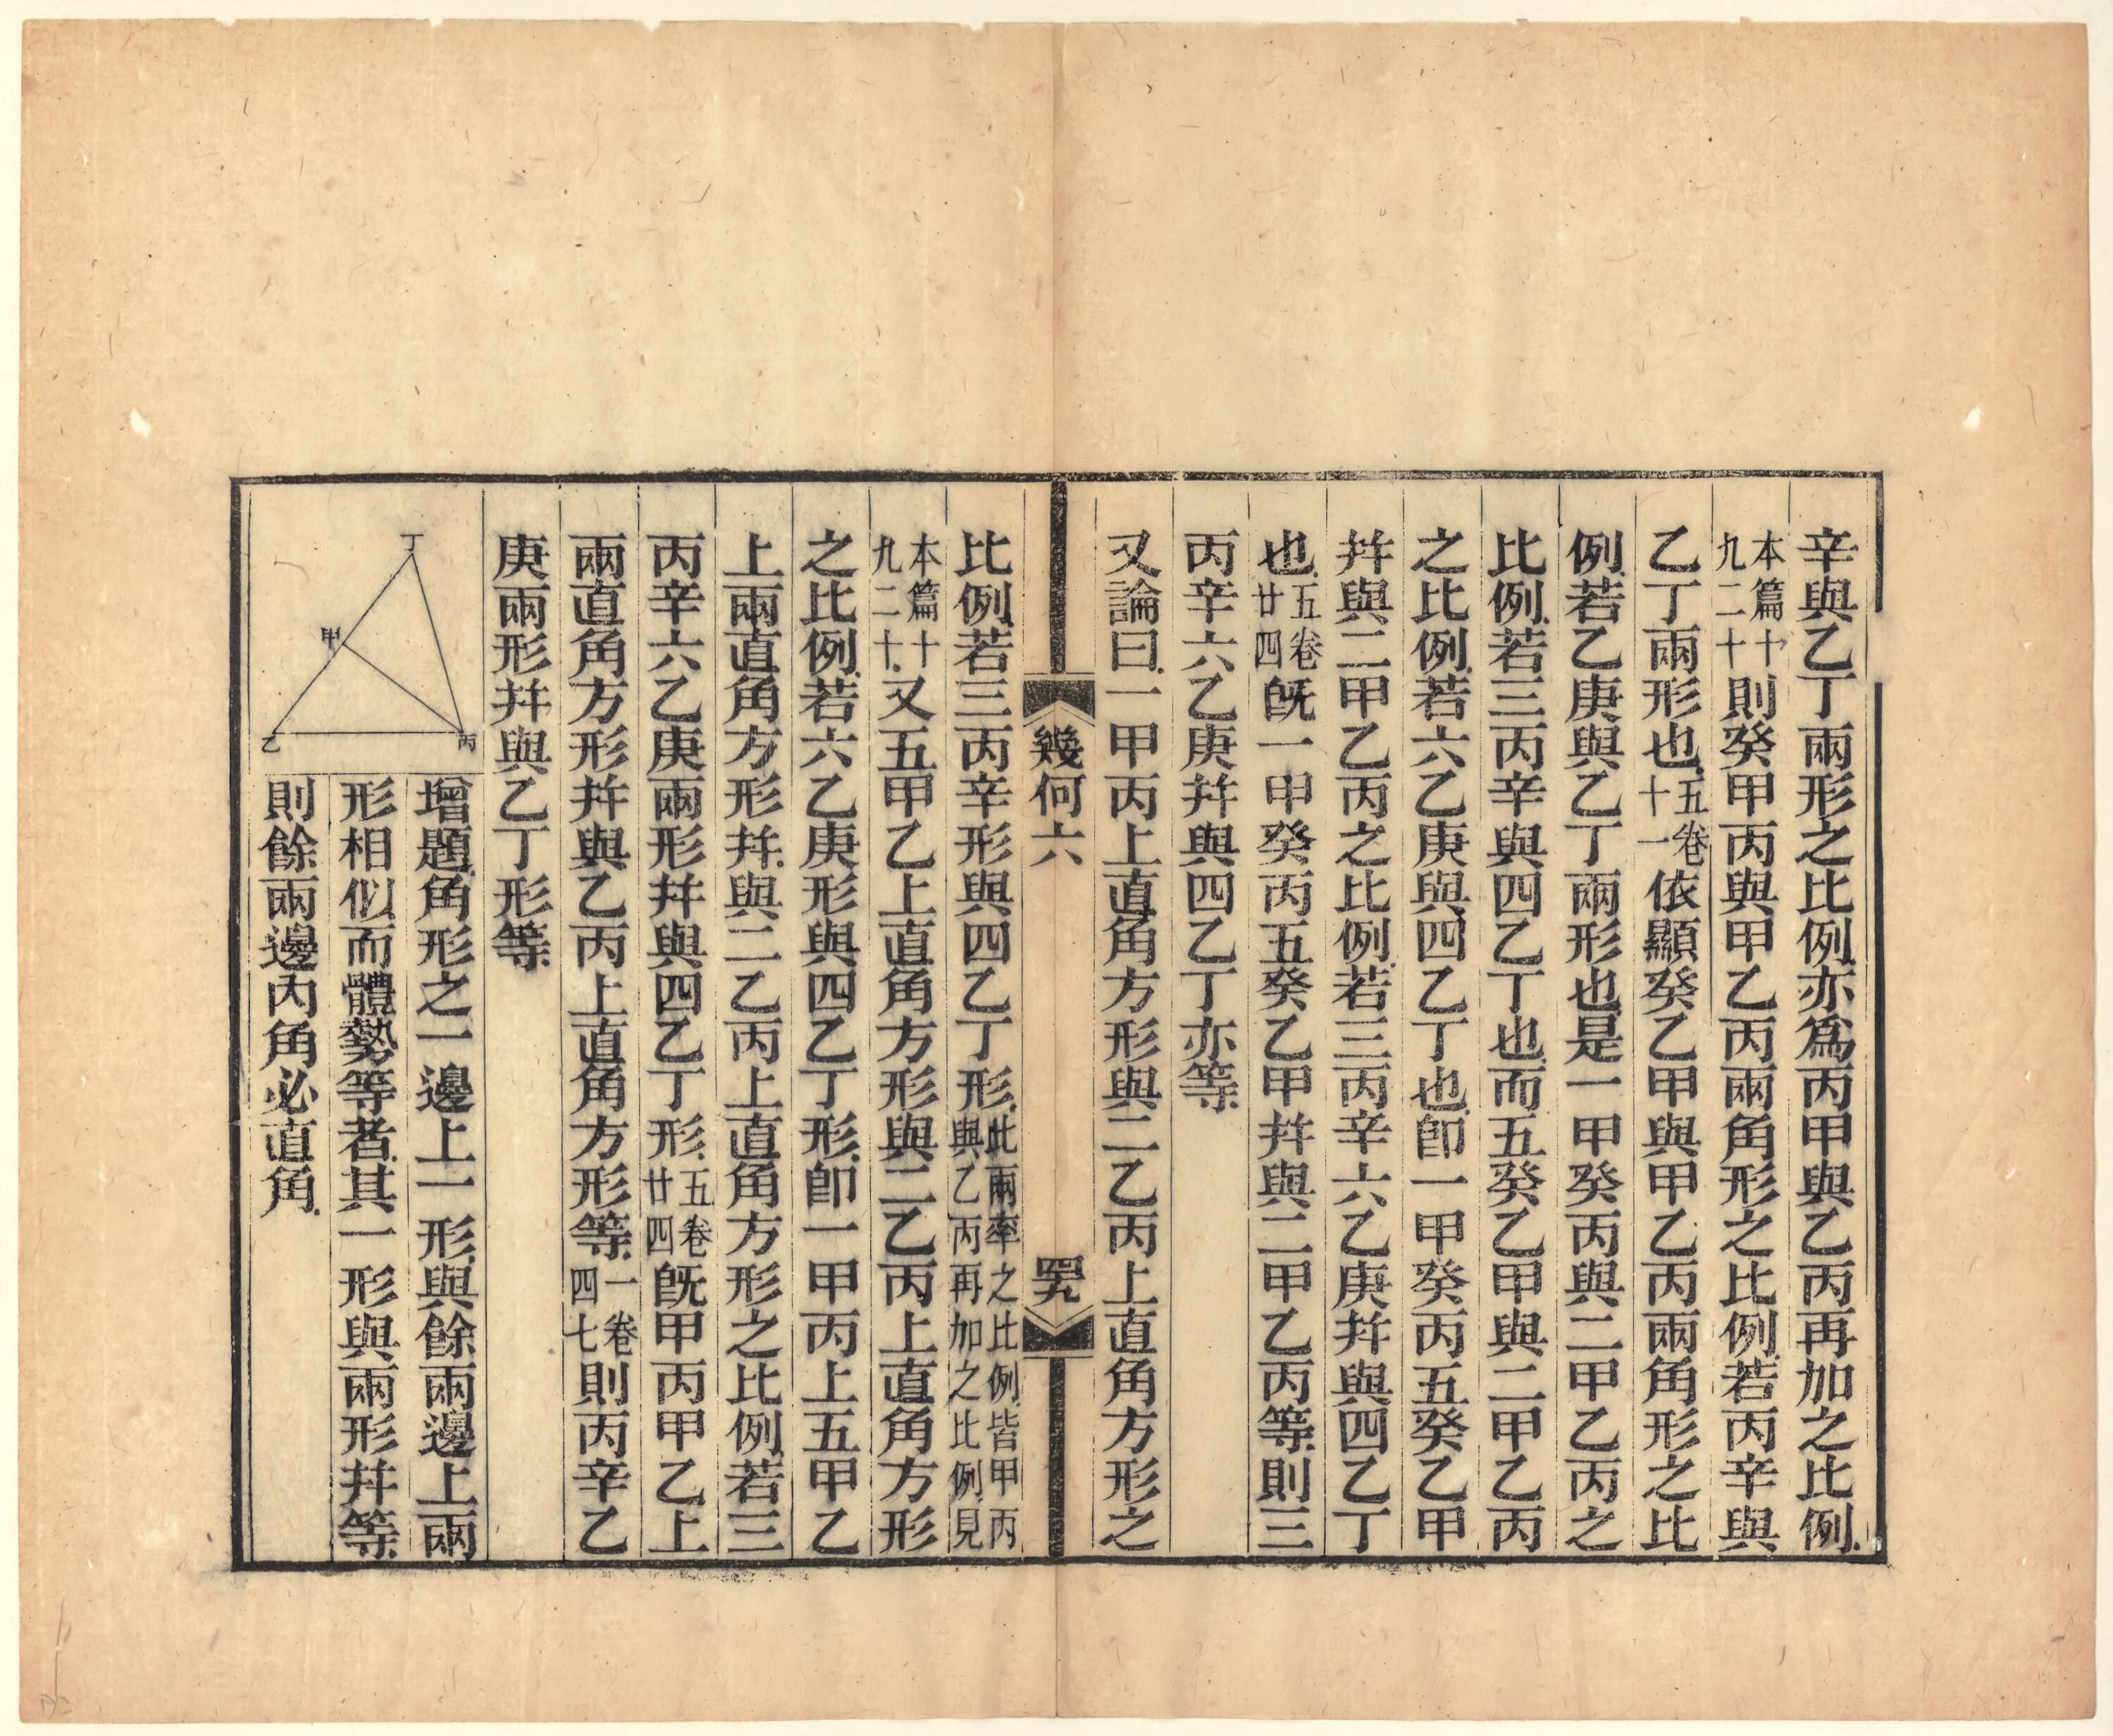 辛與乙丁兩形之比例亦爲丙甲與乙丙再加之比例
本篇十九二十則癸甲丙與甲乙丙兩角形之比例若丙辛與
乙丁兩形也五卷十一依顯癸乙甲與甲乙丙兩角形之比
例若乙庚與乙丁兩形也是一甲癸丙與二甲乙丙之
比例若三丙辛與四乙丁也而五癸乙甲與二甲乙丙
之比例若六乙庚與四乙丁也卽一甲癸丙五癸乙甲
幷與二甲乙丙之比例若三丙辛六乙庚幷與四乙丁
也五卷廿四旣一甲癸丙五癸乙甲幷與二甲乙丙等則三
丙辛六乙庚幷與四乙丁亦等
又論曰一甲丙上直角方形與二乙丙上直角方形之
幾何六
罤
比例若三丙辛形與四乙丁形此兩率之比例皆甲丙與乙丙再加之比例見
本篇十九二十又五甲乙上直角方形與二乙丙上直角方形
之比例若六乙庚形與四乙丁形卽一甲丙上五甲乙
上兩直角方形幷與二乙丙上直角方形之比例若三
丙辛六乙庚兩形幷與四乙丁形五卷廿四旣甲丙甲乙上
兩直角方形幷與乙丙上直角方形等一卷四七則丙辛乙
庚兩形幷與乙丁形等
丁
甲
乙
丙
增題角形之一邊上一形與餘兩邊上兩
形相似而體勢等者其一形與兩形幷等
則餘兩邊內角必直角